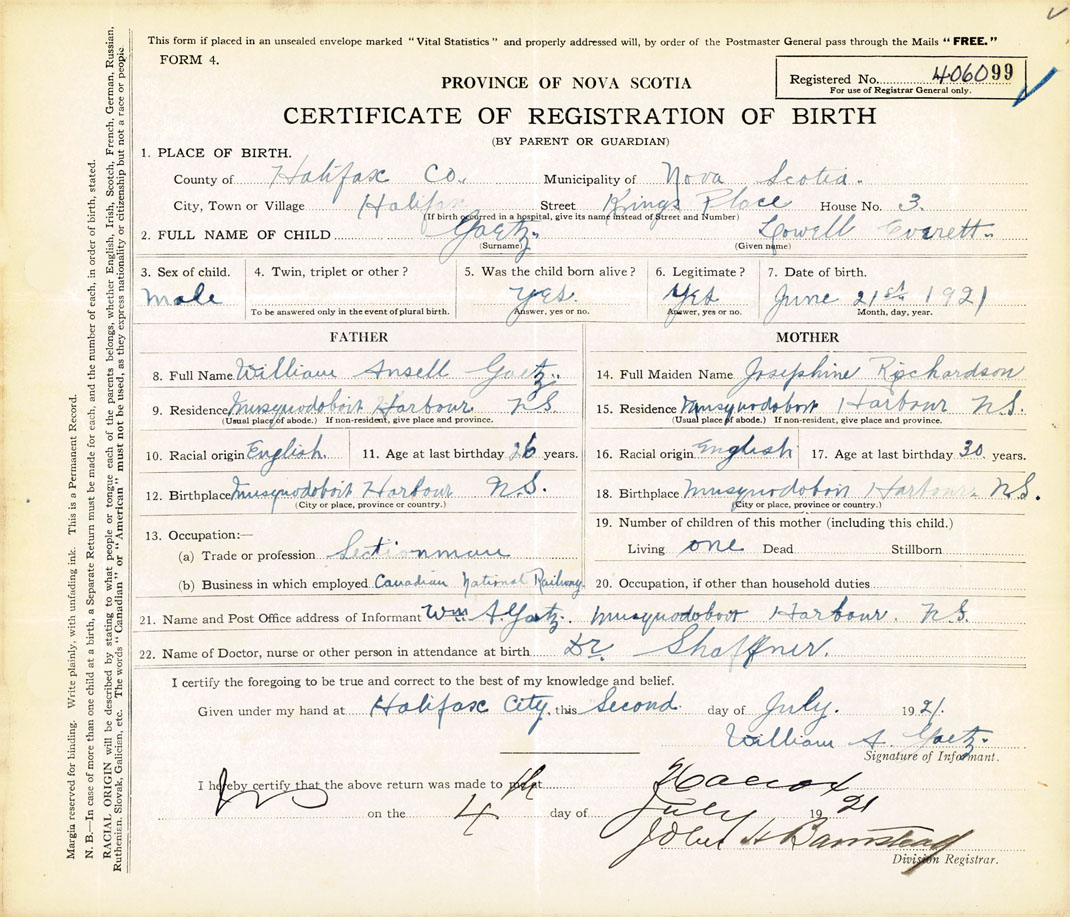 This form if placed in an unsealed envelope marked "Vital Statistics" and properly addressed will, by order of the Postmaster General pass through the Mails "FREE."
FORM 4.
Registered No. 406099
For use of Registrar General only.
PROVINCE OF NOVA SCOTIA
CERTIFICATE OF REGISTRATION OF BIRTH
(BY PARENT OR GUARDIAN)
1. PLACE OF BIRTH.
County of Halifax Co. Municipality of Nova Scotia.
City, Town or Village Halifax Street Kings Place House No. 3.
(If birth occurred in a hospital, give its name instead of Street and Number)
2. FULL NAME OF CHILD Gaetz. Lowell Everett.
(Surname) (Given name)
3. Sex of child. 4. Twin, triplet or other? 5. Was the child born alive? 6. Legitimate? 7. Date of birth.
male Yes. Yes June 21st 1921
To be answered only in the event of plural birth. Answer, yes or no. Answer, yes or no. Month, day, year.
FATHER MOTHER
8. Full Name William Ansell Gaetz. 14. Full Maiden Name Josephine Richardson
9. Residence Musquodoboit Harbour N.S. 15. Residence Musquodoboit Harbour N.S.
(Usual place of abode.) If non-resident, give place and province. (Usual place of abode.) If non-resident, give place and province.
10. Racial origin English. 11. Age at last birthday 26 years. 16. Racial origin English 17. Age at last birthday 30 years.
12. Birthplace Musquodoboit Harbour N.S. 18. Birthplace Musquodoboit Harbour N.S.
(City or place, province or country.) (City or place, province or country.)
13. Occupation:— 19. Number of children of this mother (including this child.)
(a) Trade or profession Sectionman Living one Dead Stillborn
(b) Business in which employed Canadian National Railway. 20. Occupation, if other than household duties
21. Name and Post Office address of Informant Wm A. Gaetz. Musquodoboit Harbour. N.S.
22. Name of Doctor, nurse or other person in attendance at birth Dr. Shaffner.
I certify the foregoing to be true and correct to the best of my knowledge and belief.
Given under my hand at Halifax City, this Second day of July. 1921.
William A. Gaetz.
Signature of Informant.
I hereby certify that the above return was made to me at
on the 4th day of July 1921
John H Barnstead
Division Registrar.
Margin reserved for binding. Write plainly, with unfading ink. This is a Permanent Record.
N. B.—In case of more than one child at a birth, a Separate Return must be made for each, and the number of each, in order of birth, stated.
RACIAL ORIGIN will be described by stating to what people or tongue each of the parents belongs, whether English, Irish, Scotch, French, German, Russian,
Ruthenian, Slovak, Galician, etc. The words "Canadian" or "American" must not be used, as they express nationality or citizenship but not a race or people